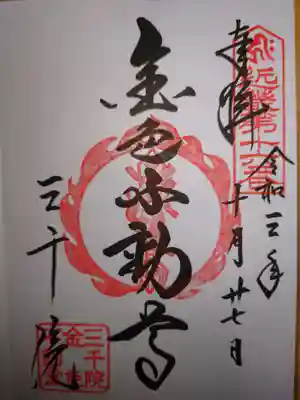 奉拝
令和三年
十月廿七日
近畿第十六番
金色不動尊
三千院
三千院
金